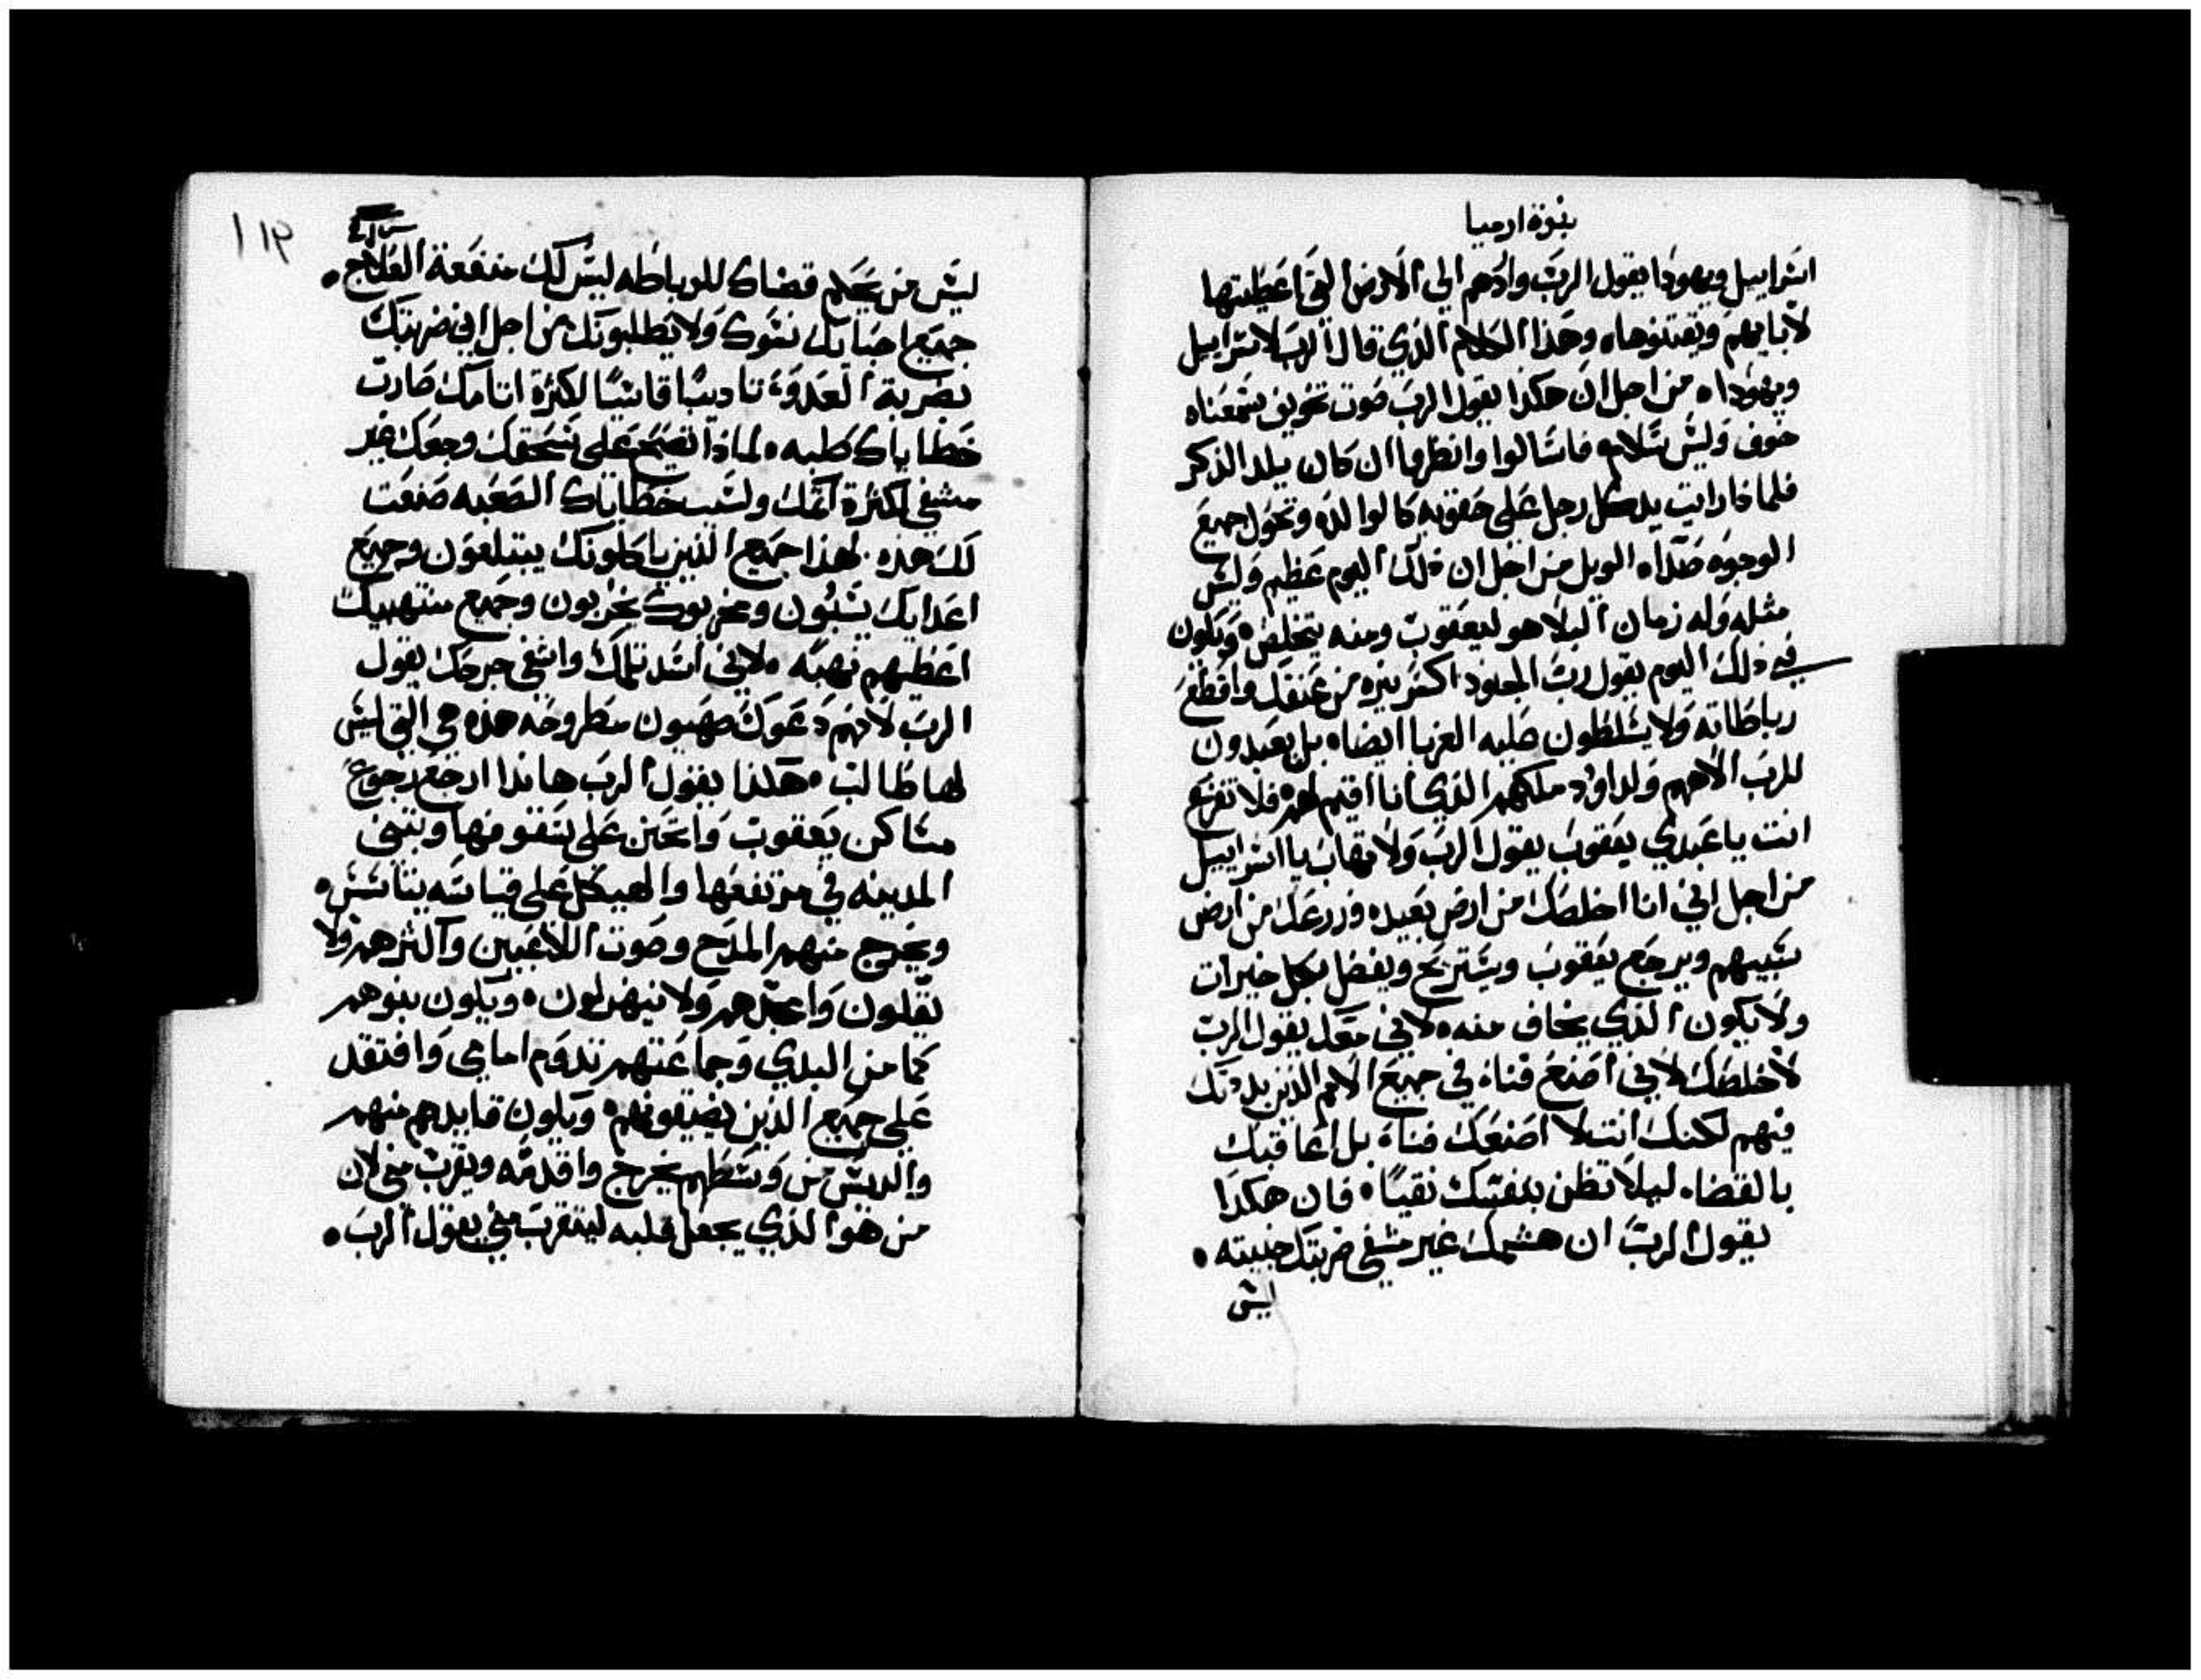 نبوة ارميا
اسراييل ويهودا يقول الرب واردهم الي الارض التي اعطيتها
لابايهم ويقتنوها، وهذا الكلام الذي قال الرب لاسراييل
ويهودا، من اجل ان هكذا يقول الرب صوت تخويف سمعناه
خوف وليس سلام، فاسالوا وانظروا ان كان يلد الذكر
فلماذا رايت يد كل رجل علي حقويه كالوالده وتحول جميع
الوجوه صداه الويل من اجل ان ذلك اليوم عظيم وليس
مثله وله زمان البلا هو ليعقوب ومنه يتخلص، ويكون
في ذلك اليوم يقول رب الجنود اكسر نيره من عنقك واقطع
رباطاته ولا يتسلطون عليه الغربا ايضا، بل يعبدون
للرب الاههم ولداوود ملكهم الذي انا اقيم لهم، فلا تفزع
انت يا عبدي يعقوب يقول الرب ولا تهاب يا اسراييل
من اجل اني انا اخلصك من ارض بعيده وزرعك من ارض
سبيهم ويرجع يعقوب ويستريح ويفضل بكل خيرات
ولا يكون الذي يخاف منه، لاني معك يقول الرب
لاخلصك لاني اصنع فناء في جميع الامم الذين بددتك
فيهم لكنك انت لا اصنعك فناء بل اعاقبك
بالقضا، ليلا تظن بنفسك نقيا، فان هكذا
يقول الرب ان هشمك غير مشفي ضربتك خبيته،
ليس
١١٣
ليس من يحكم قضاك للرباطه ليس لك منفعة العلاج،
جميع احبابك نسوك ولا يطلبونك من اجل اني ضربتك
بضربة العدو، تاديبا قاسيا لكثرة اتامك صارت
خطاياك صلبه، لماذا تصيح علي سحقك وجعك غير
مشفي لكثرة اثمك ولسبب خطاياك الصعبه صنعت
لك هذه لهذا جميع الذين ياكلونك يبتلعون وجميع
اعدايك يسبون ومخربوك يخربون وجميع منتهبيك
اعطيهم نهبه، لاني اسد تلمك واشفي جرحك يقول
الرب لانهم دعوك صهيون مطروحه هذه هي التي ليس
لها طالب، هكذا يقول الرب هانذا ارجع رجوع
مساكن يعقوب واتحنن علي سقوفها وتبني
المدينه في مرتفعها والهيكل علي قياسه يتاسس،
ويخرج منهم المدح وصوت اللاعبين واكثرهم ولا
يقلون وامجدهم ولا ينهزلون، ويكون بنوهم
كما من البدي وجماعتهم تدوم امامي وافتقد
علي جميع الذين يضيقونهم، ويكون قايدهم منهم
والريس من وسطهم يخرج واقدمه ويقرب مني لان
من هو الذي يجعل قلبه ليتقرب مني يقول الرب،